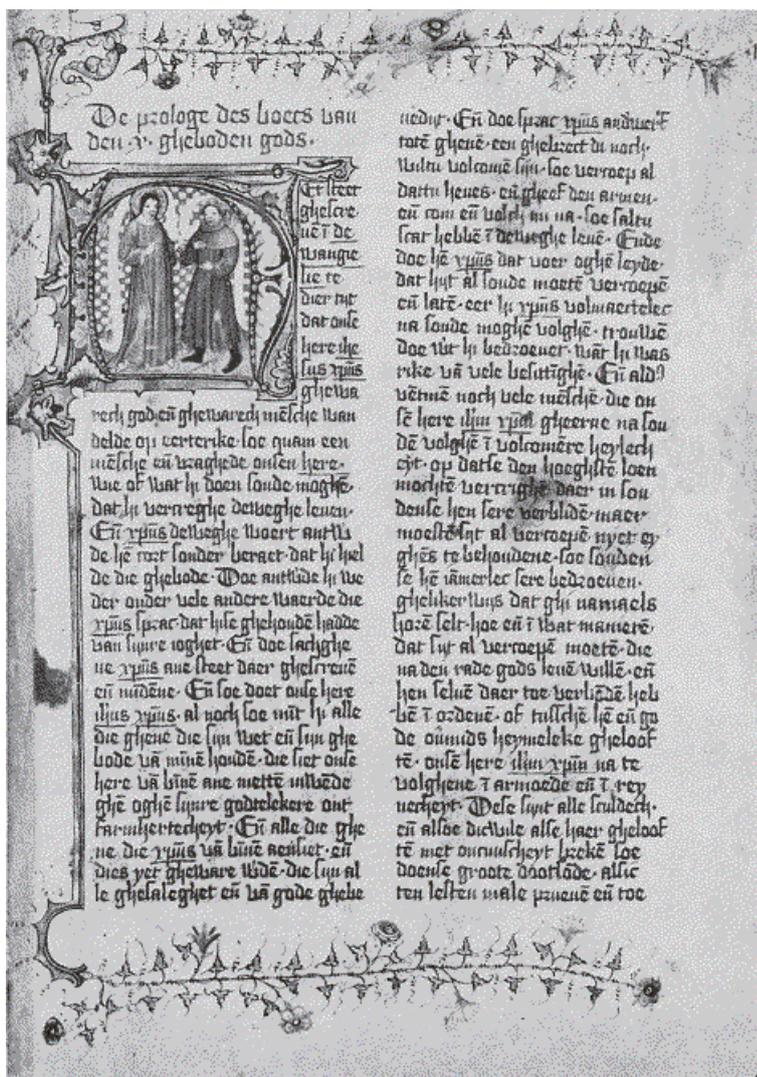 De prologe des boecs van
den .x. gheboden gods.
Et steet
ghescre
uē ī de
wangie
lie te
dier tijt
dat onse
here ihe
sus xp̄us
ghewa
rech god eñ ghewarech mēsche wan
delde op eertrike. soe quam een
mēsche eñ vraghede onsen here.
wie of wat hi doen soude moghē.
dat hi vercreghe deweghe leuen.
Eñ xp̄us deweghe woert antw
de hē cort sonder beraet. dat hi hiel
de die ghebode. Doe antwde hi we
der onder vele andere waerde die
xp̄us sprac. dat hise ghehoudē hadde
van sijnre ioghet. Eñ doe sachghe
ne xp̄us ane steet daer ghescreuē
eñ mīdene. Eñ soe doet onse here
ih̄us xp̄us. al noch soe mīt hi alle
die ghene die sijn wet eñ sijn ghe
bode vā mīnē houdē. die siet onse
here vā bīnē ane mette inwēde
ghē oghē sijnre godtelekere ont
farmhertecheyt. Eñ alle die ghe
ne die xp̄us vā bīnē aensiet. eñ
dies yet gheware wdē. die sijn al
le ghesaleghet eñ vā gode ghebe
nedijt. Eñ doe sprac xp̄us andwerf
totē ghenē. een ghebrect di noch.
wiltu volcomē sijn. soe vercoep al
dattu heues. eñ gheef den armen.
eñ com eñ volch mi na. soe saltu
scat hebbē ī deweghe leuē. Ende
doe hē xp̄us dat voer oghē leyde.
dat hijt al soude moetē vercoepē
eñ latē. eer hi xp̄us volmaectelec
na soude moghē volghē. trouwē
doe wt hi bedroeuet. wāt hi was
rike vā vele besittīghē. Eñ aldꝰ
vētmē noch vele mēsche. die on
sē here ih̄m xp̄m gheerne na sou
dē volghē ī volcomēre heylech
eyt. op datse den hoeghstē loen
mochtē vercrighē daer in sou
dense hen sere verblidē. maer
moestēsijt al vercoepē nyet ey
ghēs te behoudene. soe souden
se hē iāmerlec sere bedroeuen.
ghelikerwijs dat ghi namaels
horē selt. hoe eñ ī wat manierē.
dat sijt al vercoepē moetē. die
na den rade gods leuē willē. eñ
hen seluē daer toe verbīdē heb
bē ī ordenē. of tusschē hē eñ go
de oūmids heymeleke gheloef
tē. onse here ih̄m xp̄m na te
volghene ī armoede eñ ī rey
necheyt. Dese sijnt alle sculdech.
eñ alsoe dicwile alse haer gheloef
tē met oncuuscheyt brekē soe
doense groote dootsōde. alsic
ten lesten male pruenē eñ toe